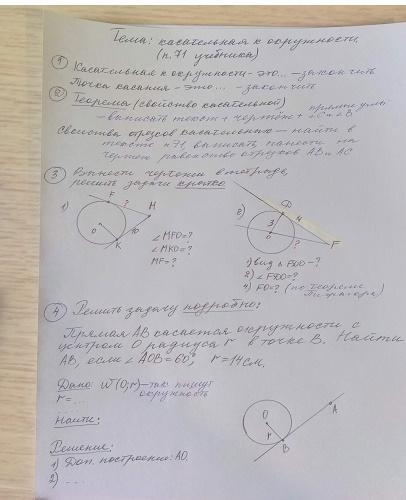 Тема: касательная к окружности.
(п.71 учебника)
① Касательная к окружности - это... - закончить
Точка касания - это... - закончить
② Теорема (свойство касательной)
- выписать текст + чертёж +
Свойства отрезков касательных - найти в
тексте п.71, выписать, нанести на
чертеж равенство отрезков АВ и АС
③ Вынести чертежи в тетрадь,
решить задачи кратко
1)
F
?
H
O
10
K
∠MFO=?
∠MKO=?
MF=?
2)
D
3
4
O
?
F
1) вид △FDO-?
2) ∠FDO=?
3) FO=? (по теореме
Пифагора)
④ Решить задачу подробно:
Прямая АВ касается окружности с
центром О радиуса r в точке В. Найти
АВ, если ∠AOB=60°, r=14см.
Дано: W(O;r) - так пишут
окружность
r=...
Найти:
Решение:
1) Доп. построение: АО.
2) ....
O
r
B
A